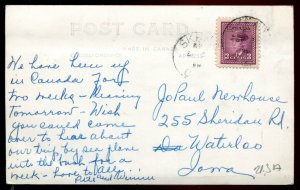 POST CARD
MADE IN CANADA
We have been up
in Canada for
two weeks - Leaving
Tomorrow - Wish
you could come
over to hear about
our trip by sea plane
into the bush for a
week - Love to all
3 CANADA 3
To Paul Newhouse
255 Sheridan Rd.
Waterloo
Iowa
USA